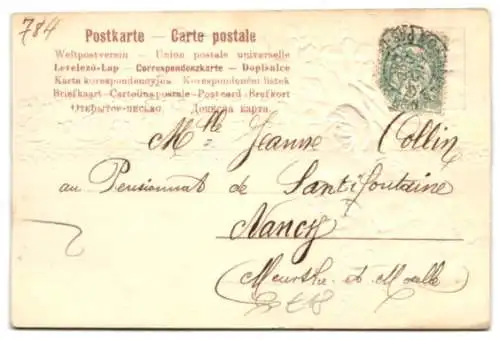 784
Postkarte — Carte postale
Weltpostverein — Union postale universelle
Levelező-Lap — Correspondenzkarte — Dopisnice
Karta korespondencyjna Korespondenční lístek
Briefkaart — Cartolina postale — Postcard — Brefkort
Открытое письмо Дописна карта.
Mlle Jeanne Collin
au Pensionnat de Santifontaine
Nancy
(Meurthe et Molle)